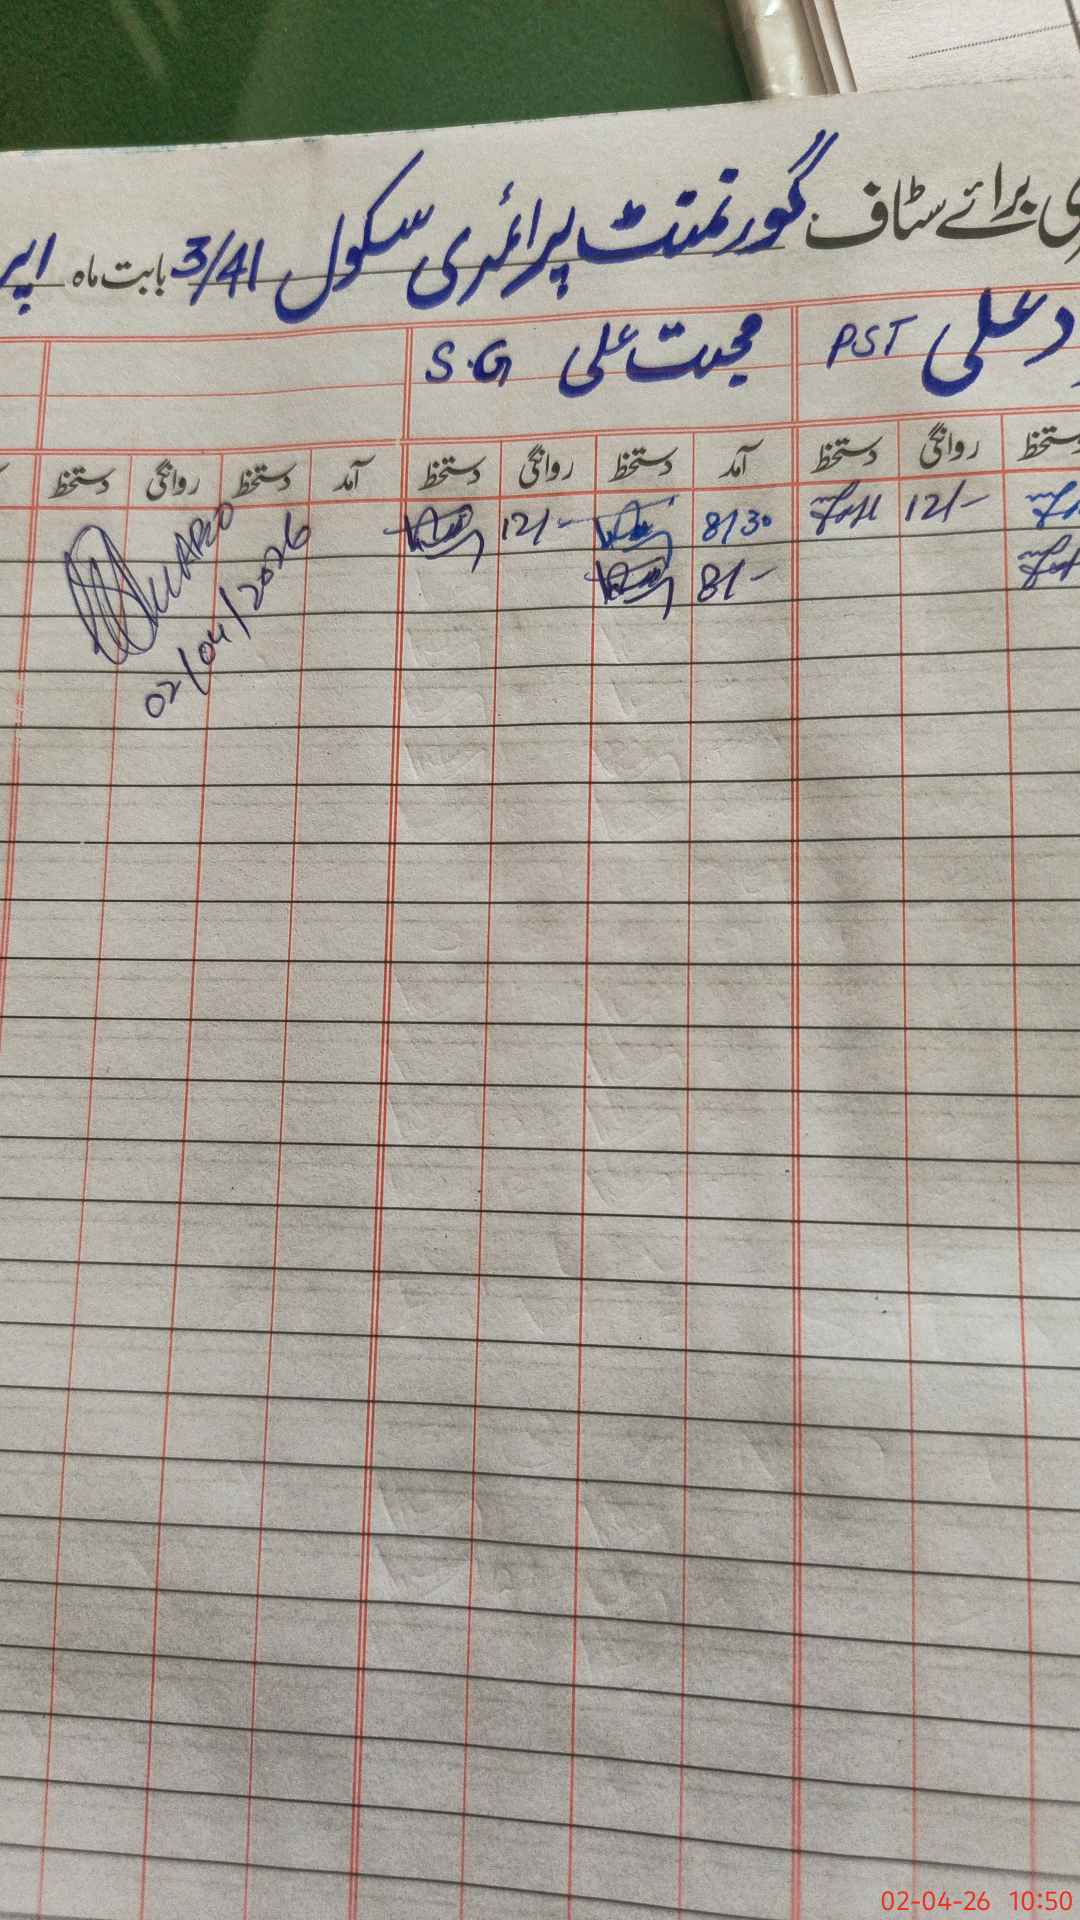 برائے سٹاف گورنمنٹ پرائمری سکول 3/41 بابت ماہ
علی PST محبت علی S.G
دستخط روانگی دستخط آمد دستخط روانگی دستخط آمد دستخط روانگی دستخط
12/- 8/30 12/-
8/-
02/04/2026
02-04-26 10:50